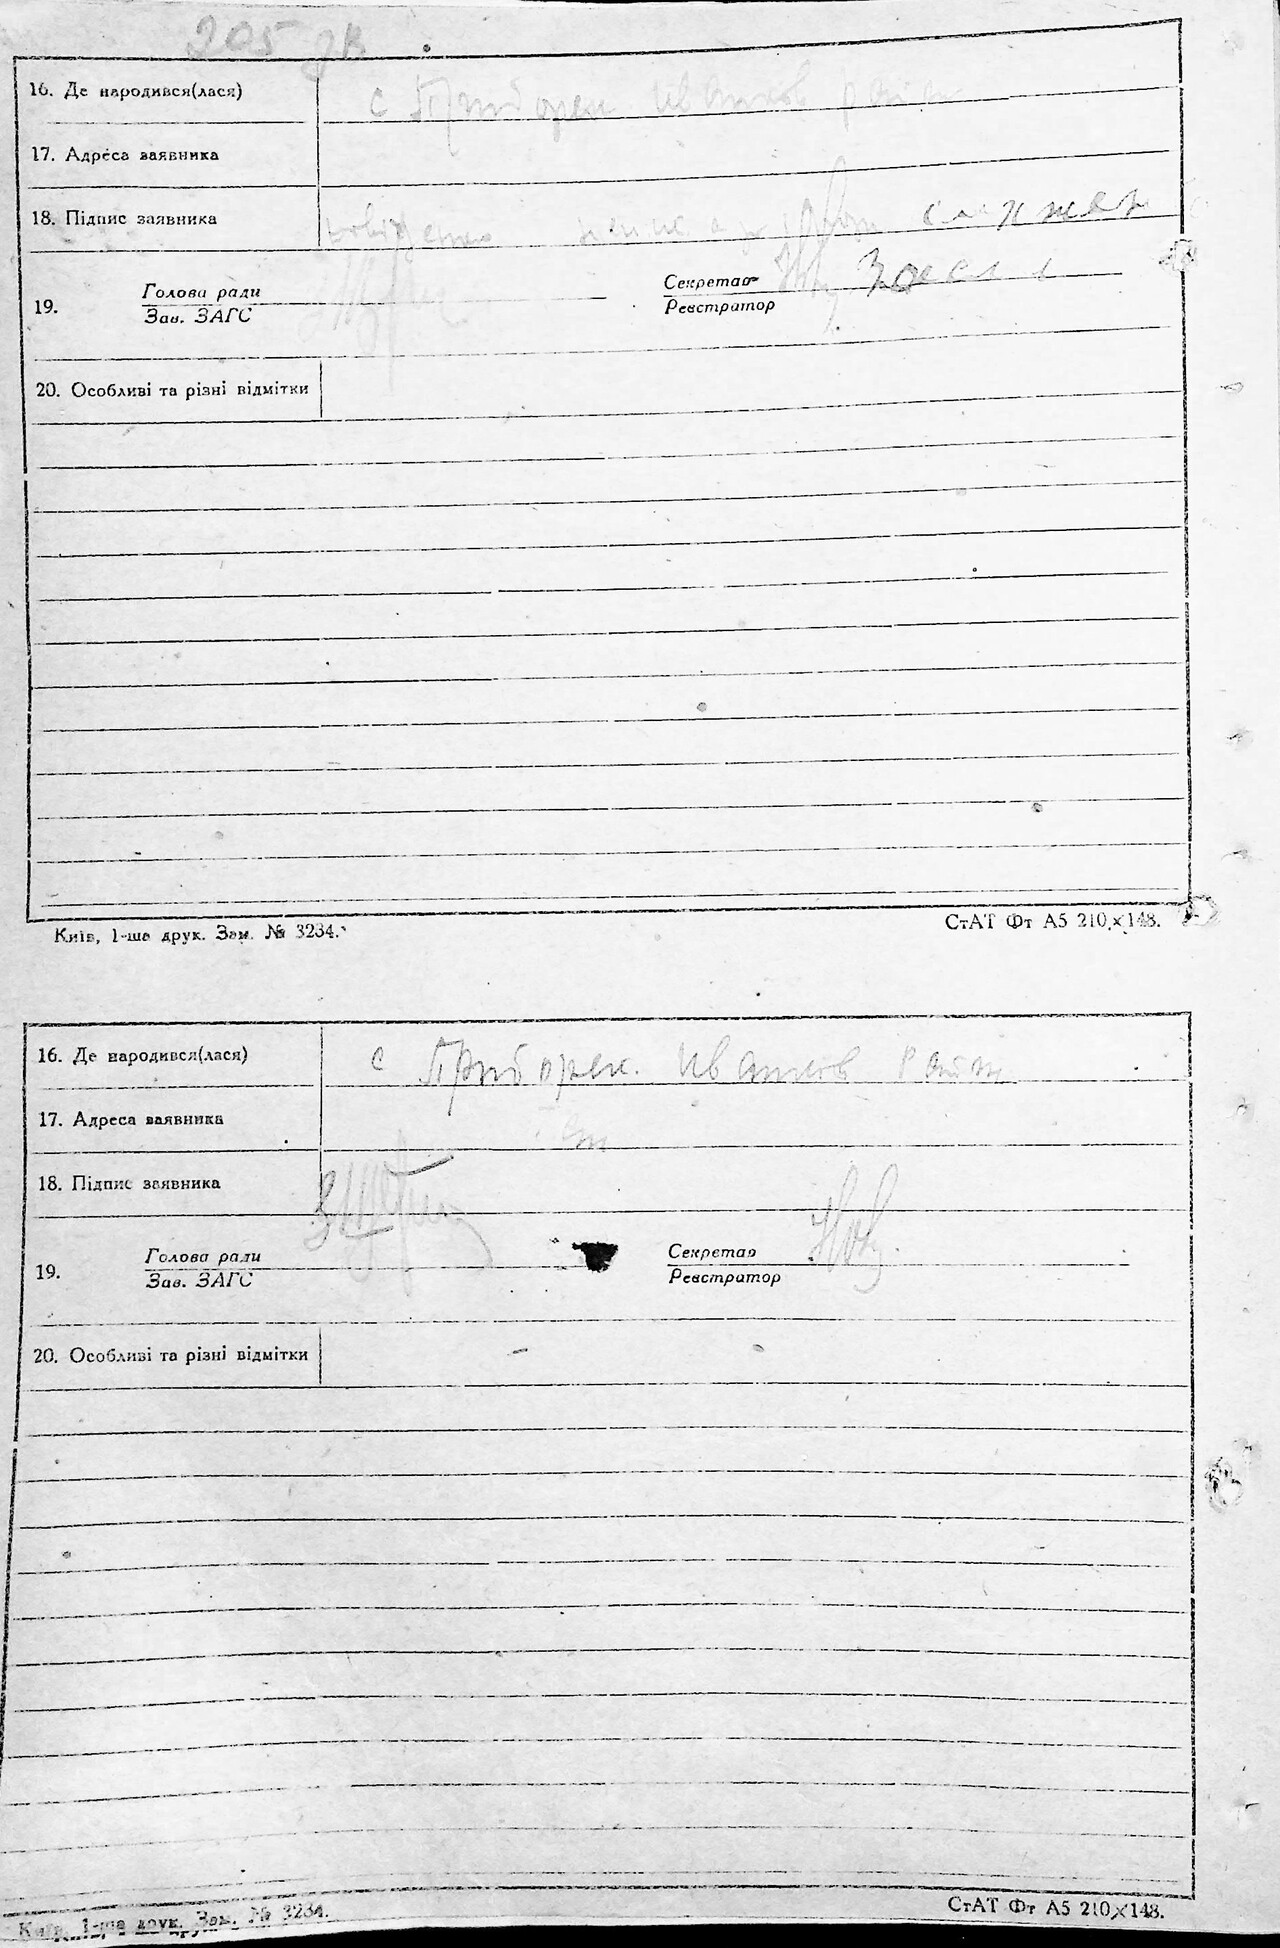 205 зв
16. Де народився(лася) с Приборск. Иванков район
17. Адреса заявника
18. Підпис заявника
19. Голова ради Секретар
Зав. ЗАГС Реєстратор
20. Особливі та різні відмітки
Київ, 1-ша друк. Зам. № 3234. СтАТ Фт А5 210×148.
16. Де народився(лася) с Приборск. Иванков район
17. Адреса заявника
18. Підпис заявника
19. Голова ради Секретар
Зав. ЗАГС Реєстратор
20. Особливі та різні відмітки
Київ, 1-ша друк. Зам. № 3234. СтАТ Фт А5 210×148.